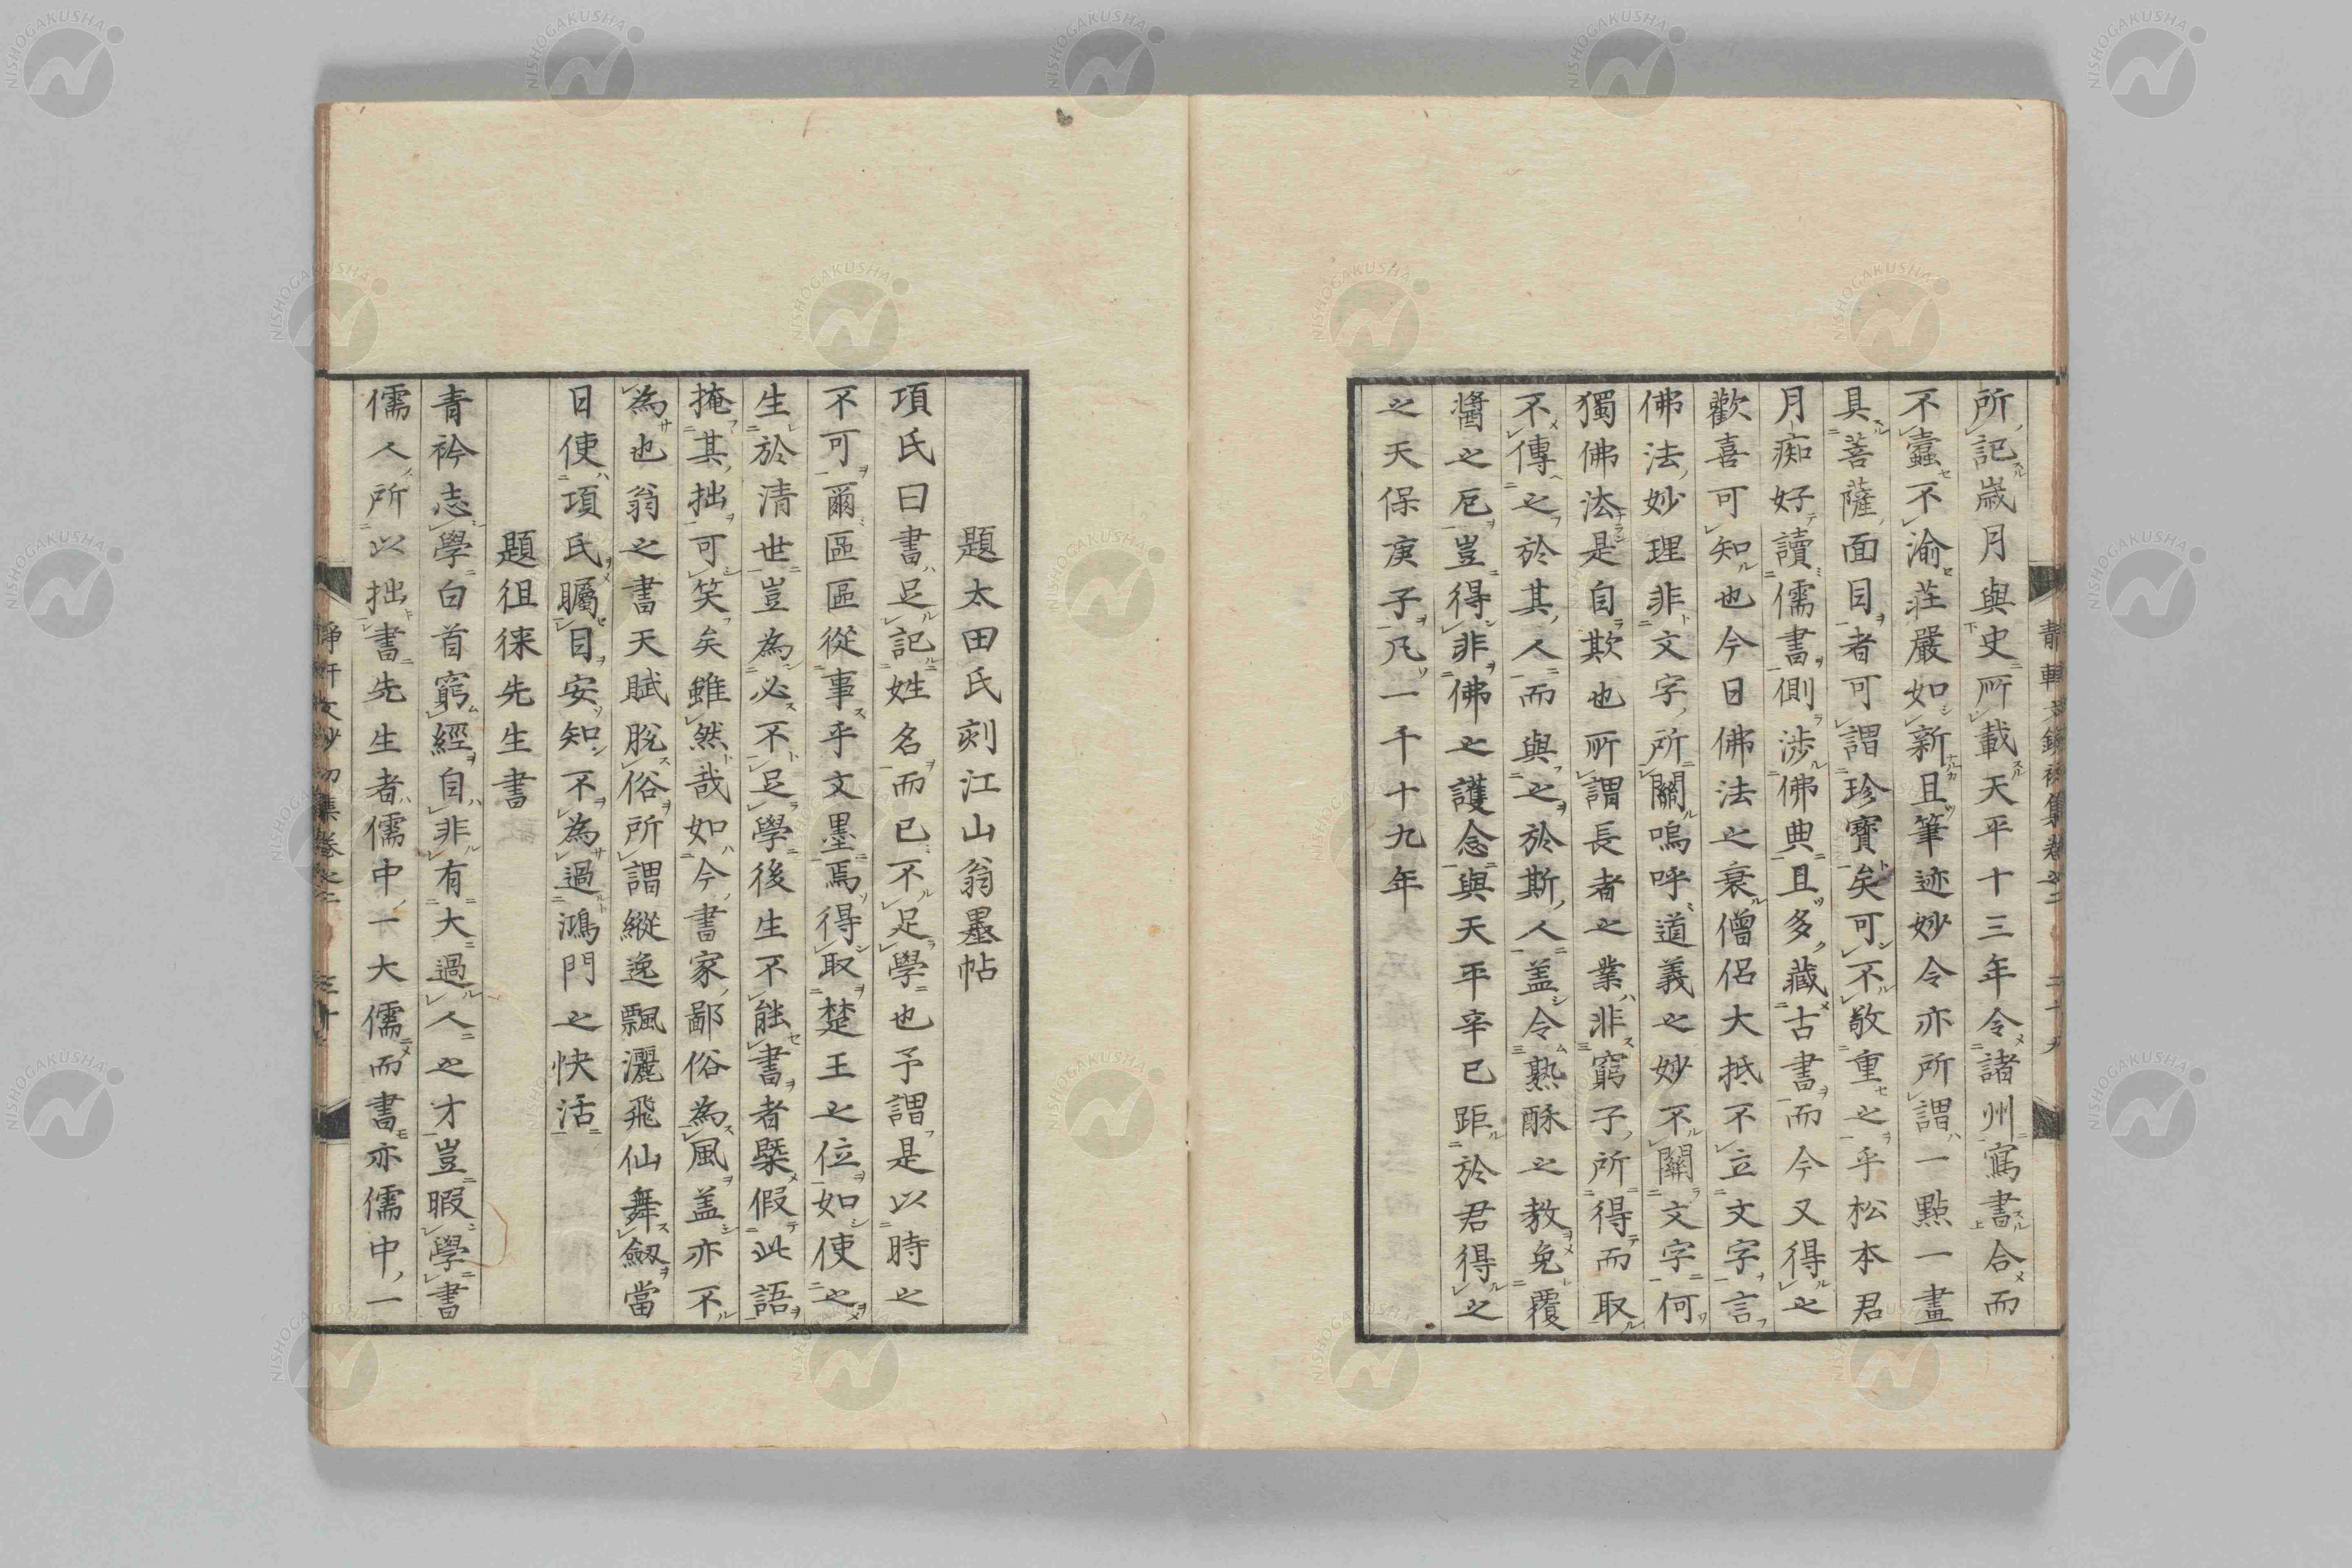 所記歳月與史所載天平十三年令諸州寫書合而
不蠹不渝莊嚴如新且筆迹妙令亦所謂一點一畫
具菩薩面目者可謂珍寶矣可不敬重之乎松本君
月痴好讀儒書側渉佛典且多藏古書而今又得之
歡喜可知也今日佛法之衰僧侶大抵不立文字言
佛法妙理非文字所關嗚呼道義之妙不關文字何
獨佛法是自欺也所謂長者之業非窮子所得而取
不傳之於其人而與之於斯人盖令熟酥之教免覆
醬之厄豈得非佛之護念與天平辛巳距於君得之
之天保庚子凡一千十九年
題太田氏刻江山翁墨帖
項氏曰書足記姓名而已不足學也予謂是以時之
不可爾區區從事乎文墨焉得取楚王之位如使之
生於清世豈為必不足學後生不能書者槩假此語
掩其拙可笑矣雖然哉如今書家鄙俗為風盖亦不
為也翁之書天賦脫俗所謂縱逸飄灑飛仙舞劒當
日使項氏矚目安知不為過鴻門之快活
題徂徠先生書
青衿志學白首窮經自非有大過人之才豈暇學書
儒人所以拙書先生者儒中一大儒而書亦儒中一
NISHOGAKUSHA